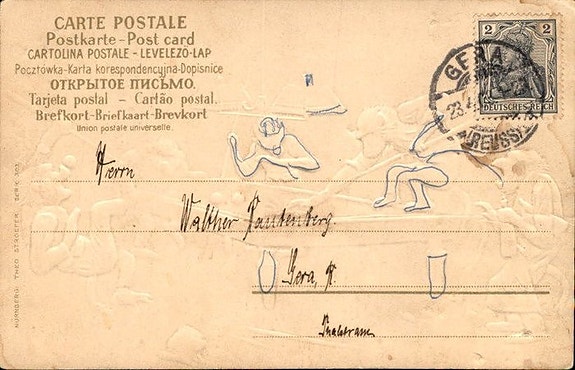 CARTE POSTALE
Postkarte - Post card
CARTOLINA POSTALE - LEVELEZO-LAP
Pocztówka-Karta korespondencyjna-Dopisnice
ОТКРЫТОЕ ПИСЬМО.
Tarjeta postal - Cartão postal.
Brefkort-Briefkaart-Brevkort
Union postale universelle.
2 2
DEUTSCHES REICH
GERA
23
(REUSS)
Herrn
Walther
Gera, R.
NÜRNBERG: THEO. STROEFER